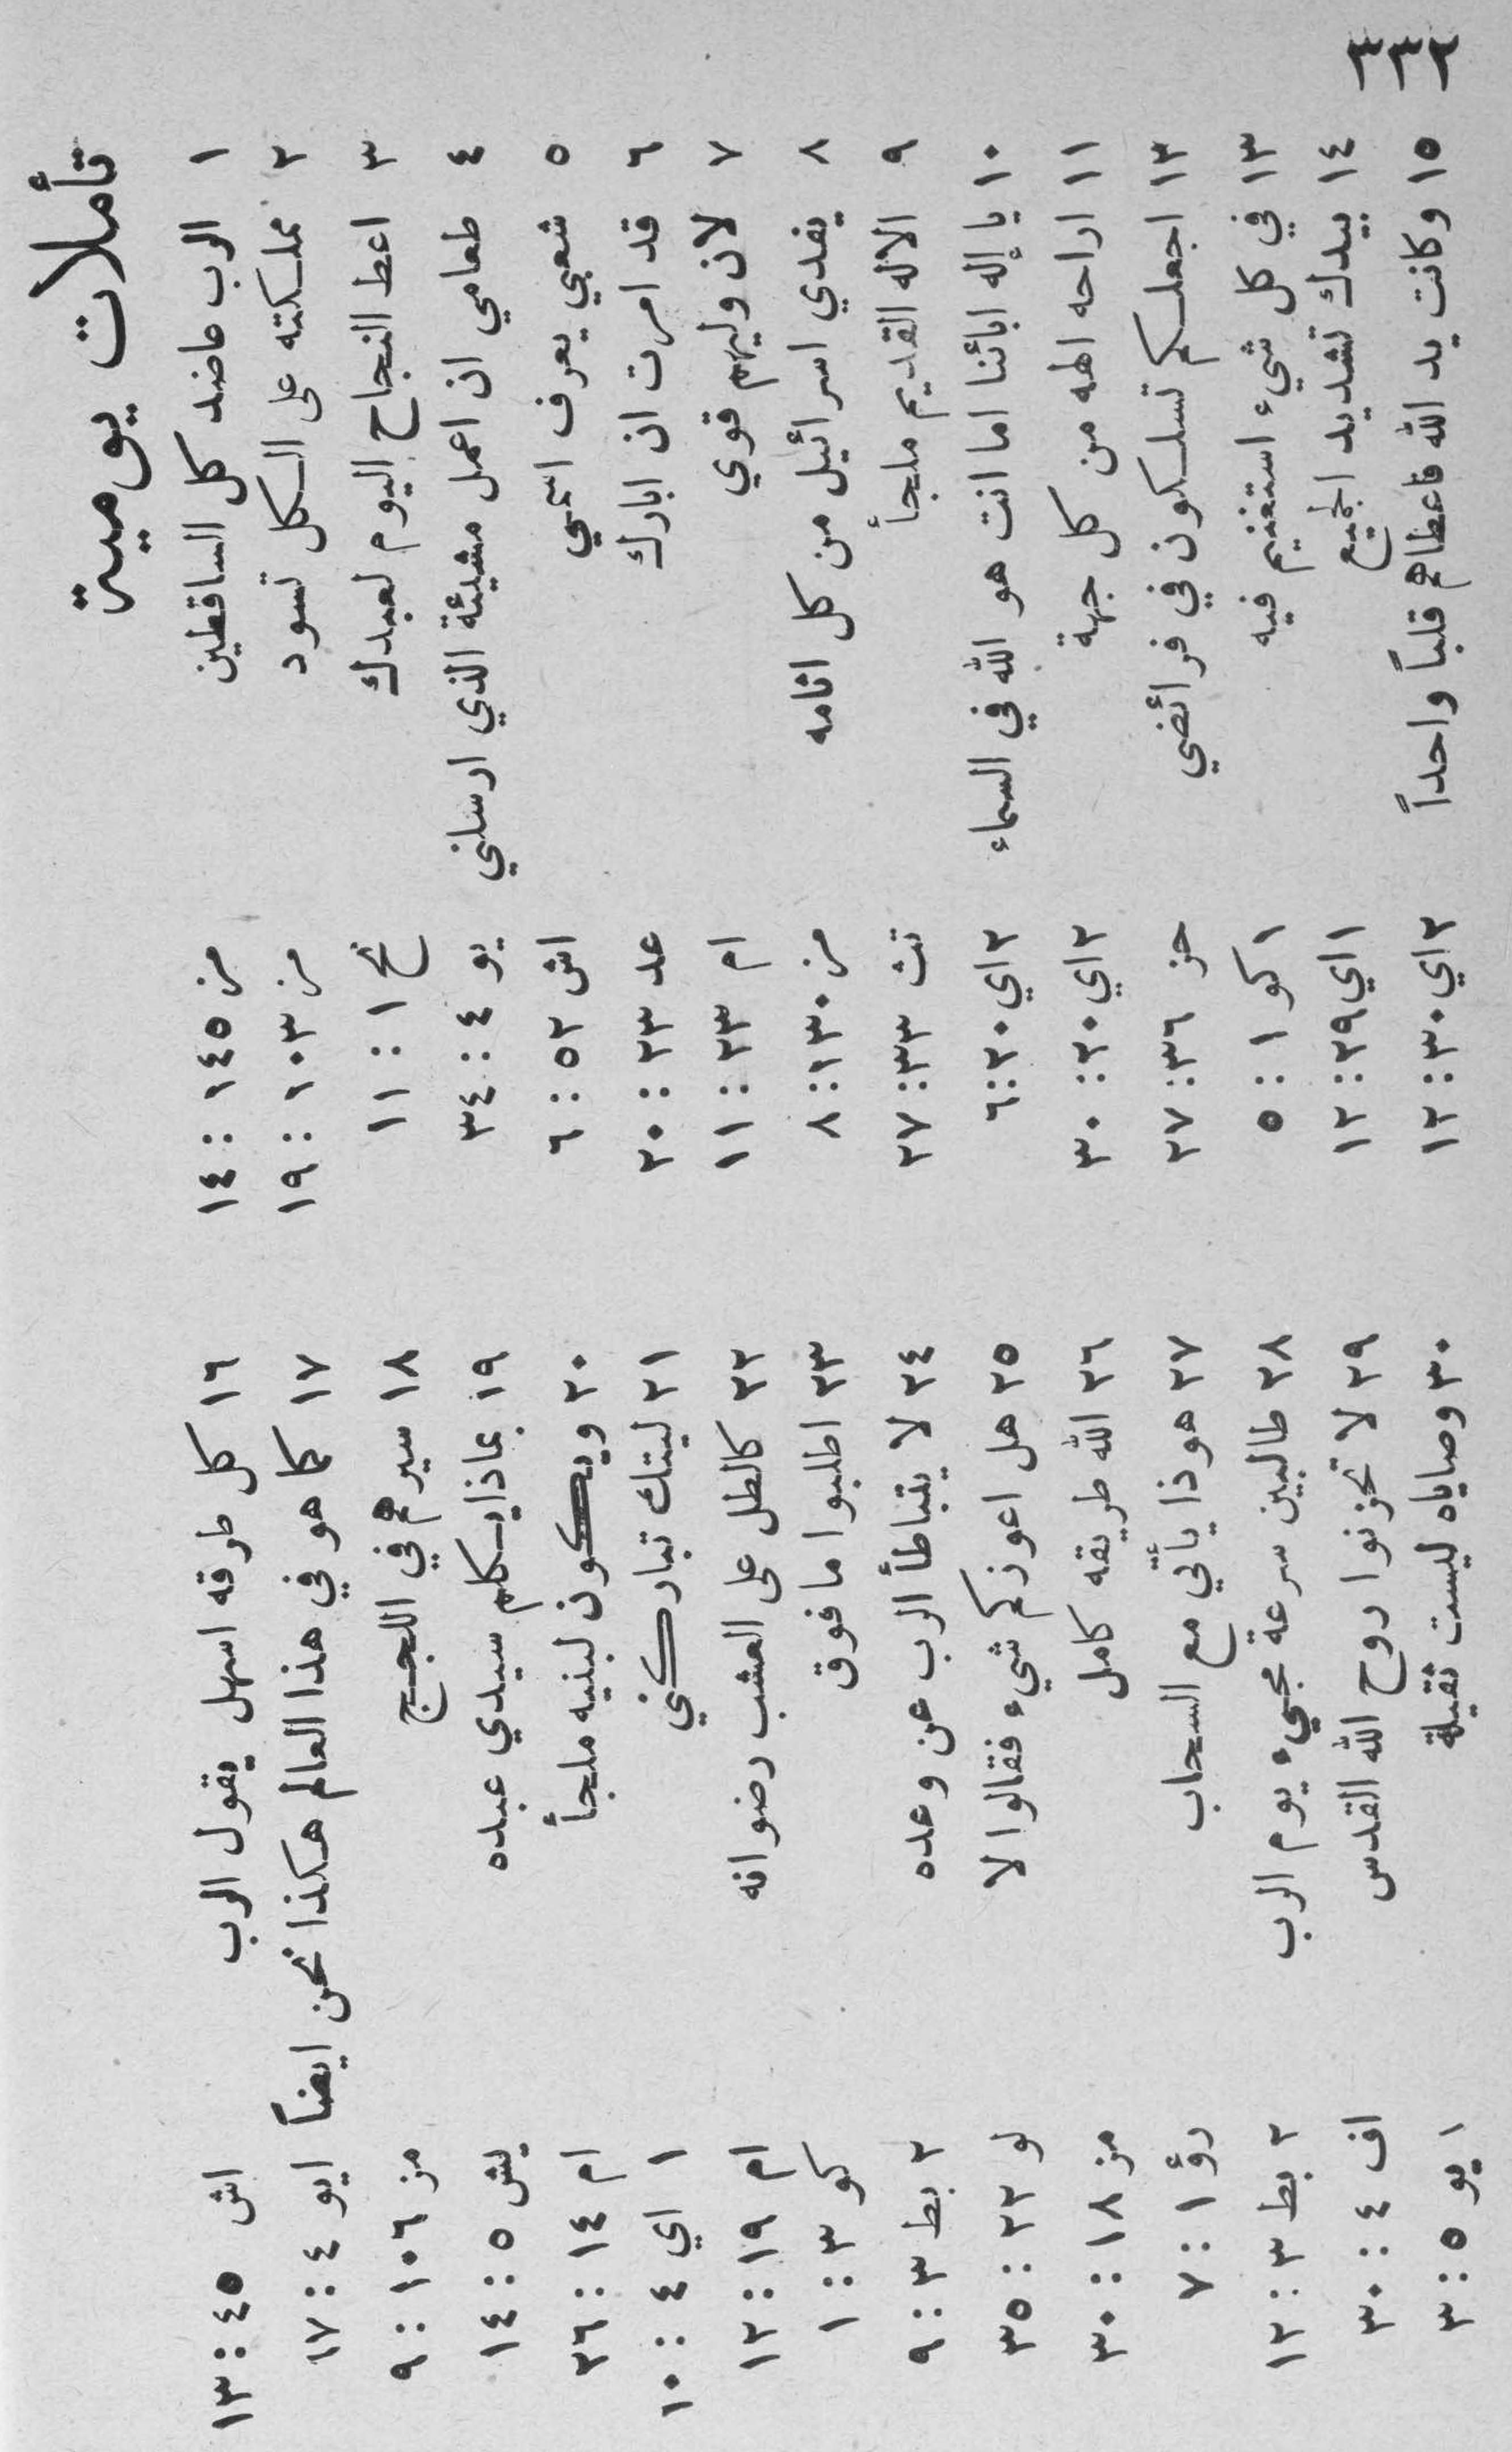 ٣٣٢
تأملات يومية
١ الرب عاضد كل الساقطين مز ١٤٥ : ١٤
٢ مملكته على الكل تسود مز ١٠٣ : ١٩
٣ اعط النجاح اليوم لعبدك نح ١ : ١١
٤ طعامي ان اعمل مشيئة الذي ارسلني يو ٤ : ٣٤
٥ شعبي يعرف اسمي اش ٥٢ : ٦
٦ قد امرت ان ابارك عد ٢٣ : ٢٠
٧ لان وليهم قوي ام ٢٣ : ١١
٨ يفدي اسرائيل من كل اثامه مز ١٣٠ : ٨
٩ الاله القديم ملجأ تث ٣٣ : ٢٧
١٠ يا إله ابائنا اما انت هو الله في السماء ٢ اي ٢٠ : ٦
١١ اراحه الهه من كل جهة ٢ اي ٢٠ : ٣٠
١٢ اجعلكم تسلكون في فرائضي حز ٣٦ : ٢٧
١٣ في كل شيء استغنيتم فيه ١ كو ١ : ٥
١٤ بيدك تشديد الجميع ١ اي ٢٩ : ١٢
١٥ وكانت يد الله فاعطاهم قلباً واحداً ٢ اي ٣٠ : ١٢
١٦ كل طرقه اسهل يقول الرب اش ٤٥ : ١٣
١٧ كما هو في هذا العالم هكذا نحن ايضاً ١ يو ٤ : ١٧
١٨ سيرهم في اللجج مز ١٠٦ : ٩
١٩ بماذا يكلم سيدي عبده يش ٥ : ١٤
٢٠ ويكون لبنيه ملجأ ام ١٤ : ٢٦
٢١ ليتك تباركني ١ اي ٤ : ١٠
٢٢ كالطل على العشب رضوانه ام ١٩ : ١٢
٢٣ اطلبوا ما فوق كو ٣ : ١
٢٤ لا يتباطأ الرب عن وعده ٢ بط ٣ : ٩
٢٥ هل اعوذكم شيء فقالوا لا لو ٢٢ : ٣٥
٢٦ الله طريقه كامل مز ١٨ : ٣٠
٢٧ هوذا يأتي مع السحاب رؤ ١ : ٧
٢٨ طالبين سرعة مجيء يوم الرب ٢ بط ٣ : ١٢
٢٩ لا تحزنوا روح الله القدس اف ٤ : ٣٠
٣٠ وصاياه ليست ثقيلة ١ يو ٥ : ٣